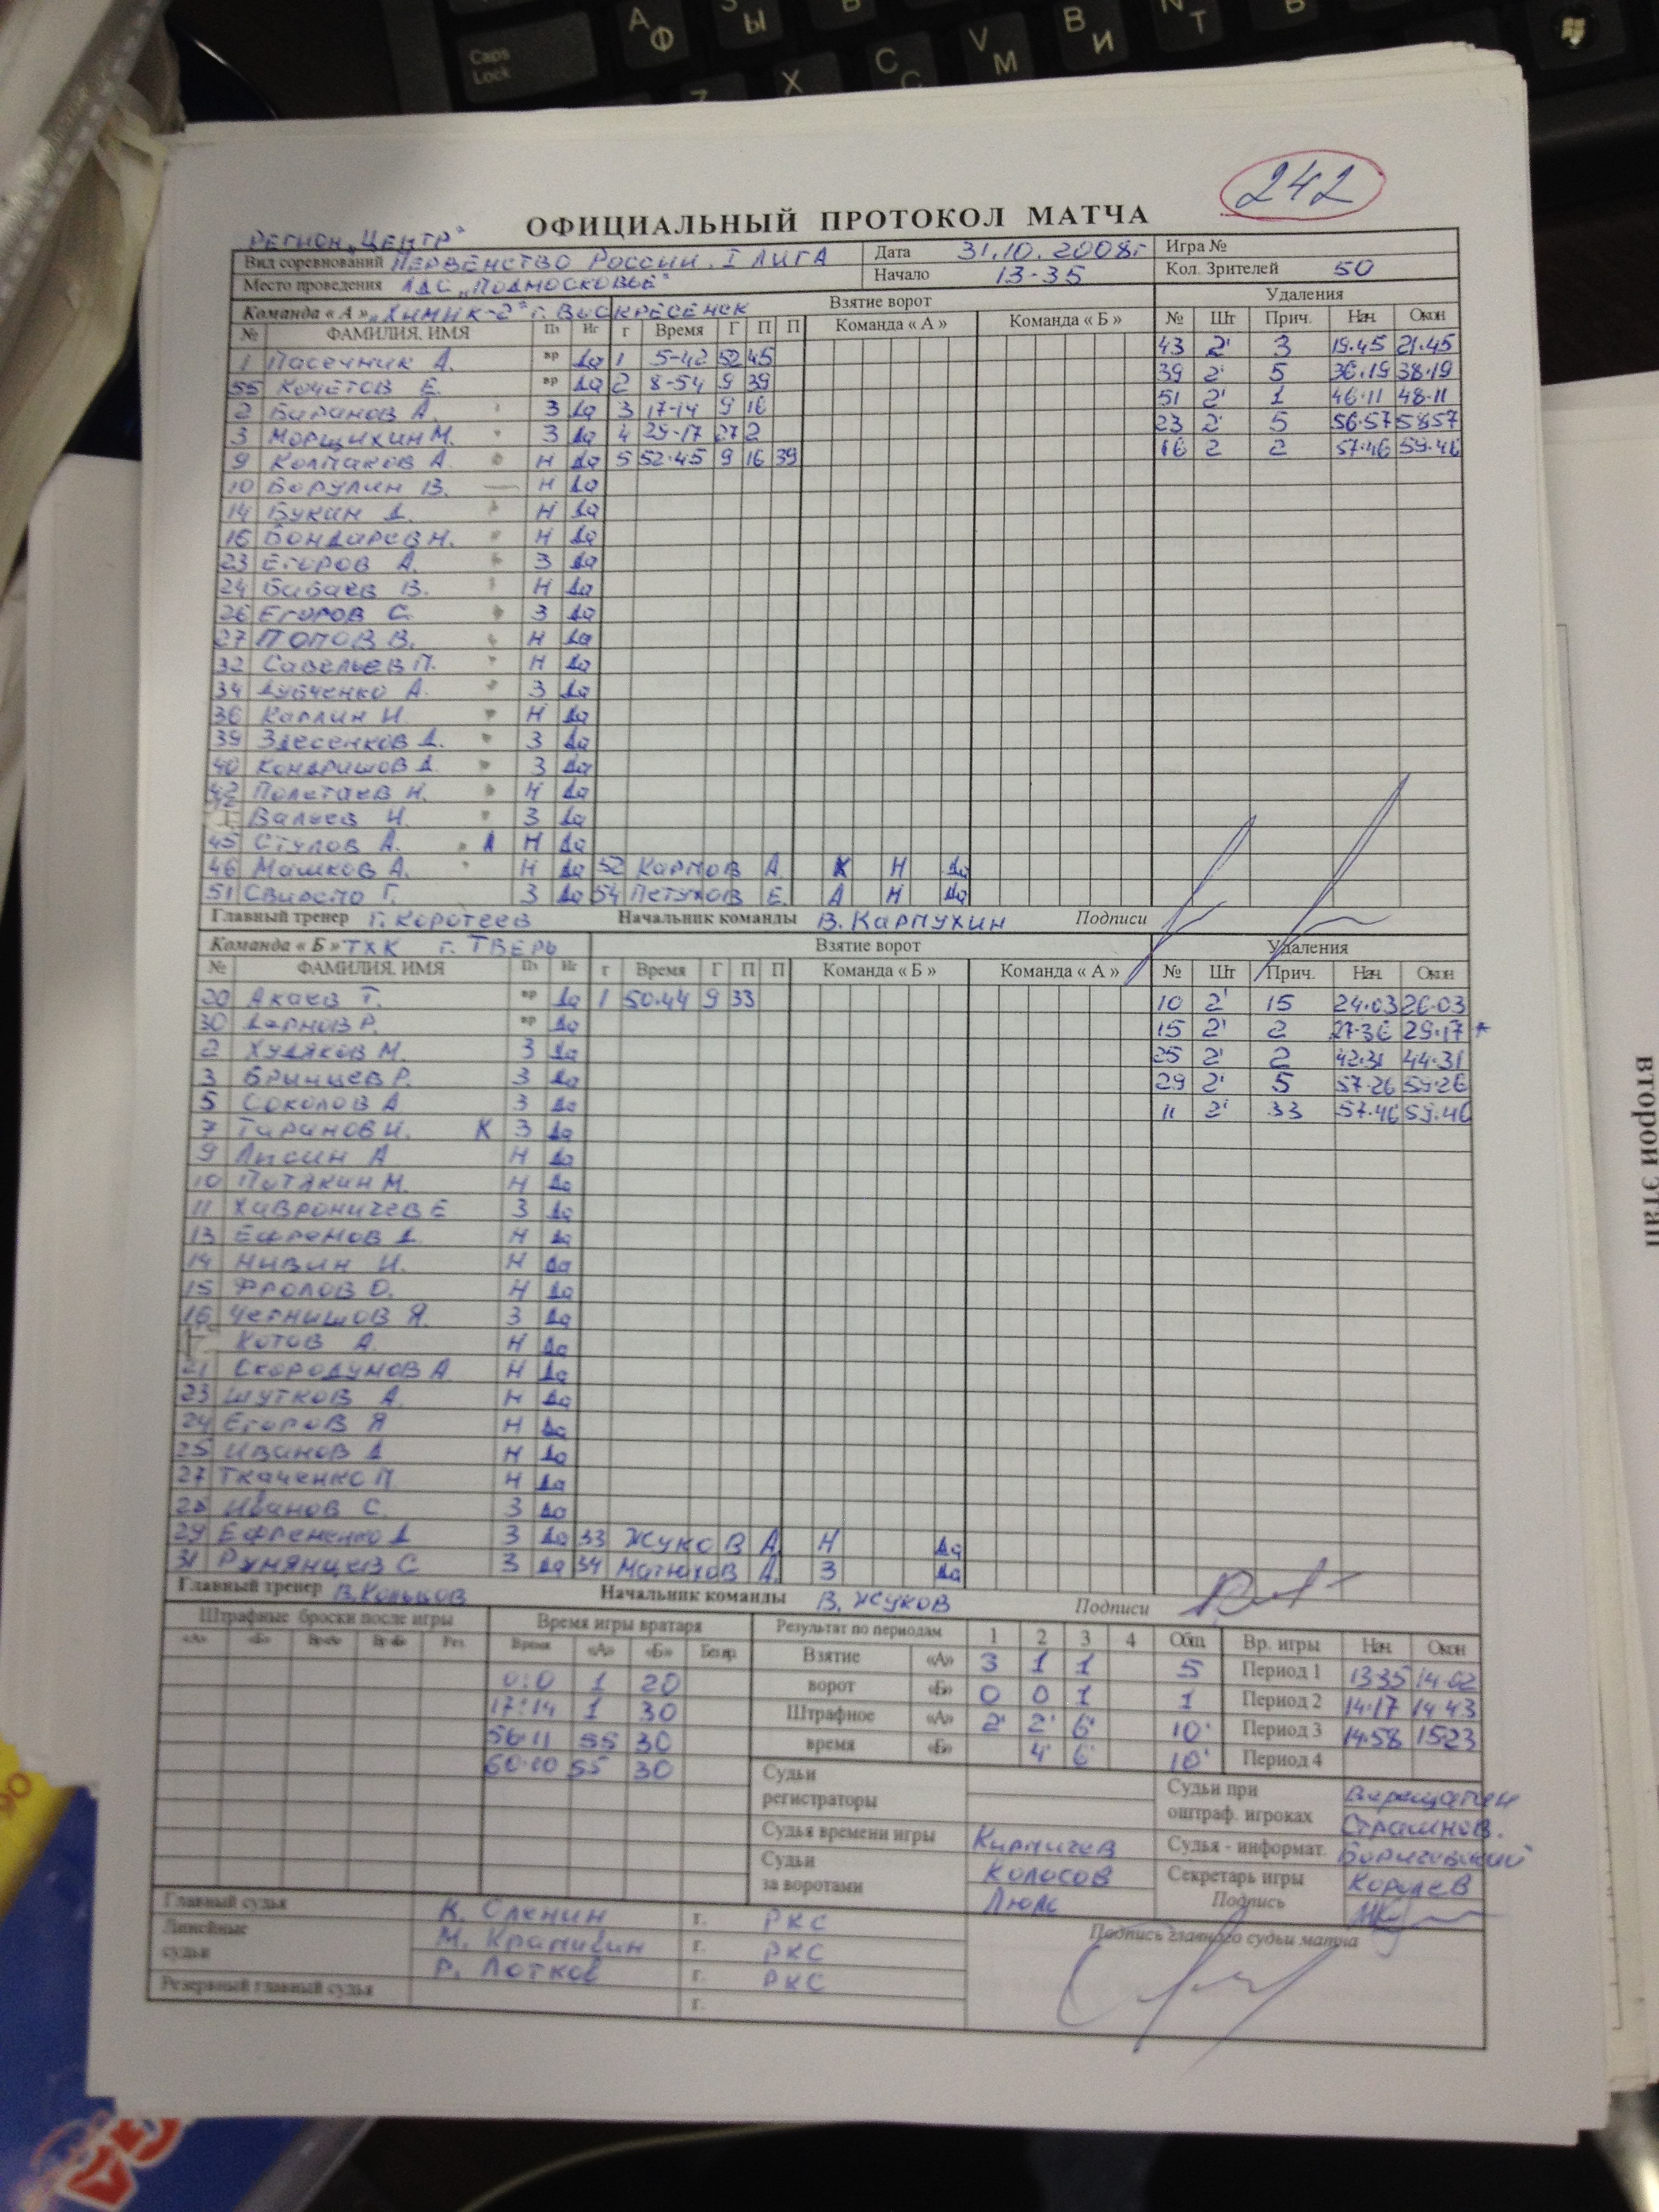 242
ОФИЦИАЛЬНЫЙ ПРОТОКОЛ МАТЧА
РЕГИОН „ЦЕНТР"
Вид соревнований ПЕРВЕНСТВО РОССИИ. I ЛИГА Дата 31.10.2008г Игра №
Место проведения ЛДС „ПОДМОСКОВЬЕ" Начало 13-35 Кол. Зрителей 50
Команда « А » „ХИМИК-2" г. ВОСКРЕСЕНСК Взятие ворот Удаления
№ ФАМИЛИЯ, ИМЯ Пз Иг г Время Г П П Команда « А » Команда « Б » № Шт Прич. Нач. Окон
1 Пасечник А. вр Да 1 5-42 52 45 43 2' 3 19.45 21.45
55 Кочетов Е. вр Да 2 8-54 9 39 39 2' 5 36.19 38.19
2 Баранов А. З Да 3 17-14 9 16 51 2' 1 46.11 48.11
3 Морщихин М. З Да 4 29-17 27 2 23 2' 5 56.57 58.57
9 Колпаков А. Н Да 5 52.45 9 16 39 16 2 2 57.46 59.46
10 Борулин В. Н Да
14 Букин Д. Н Да
16 Бондарев Н. Н Да
23 Егоров А. З Да
24 Бабаев В. Н Да
26 Егоров С. З Да
27 Попов В. Н Да
32 Савельев П. Н Да
34 Дубченко А. З Да
36 Карлин И. Н Да
39 Здесенков Д. З Да
40 Кондришов Д. З Да
42 Полетаев Н. Н Да
Валиев И. З Да
45 Стулов А. А Н Да
46 Машков А. Н Да 52 Карпов А. К Н Да
51 Г. З Да 54 Петухов Е. А Н Да
Главный тренер Г. Коротеев Начальник команды В. Карпухин Подписи
Команда « Б » ТХК г. ТВЕРЬ Взятие ворот Удаления
№ ФАМИЛИЯ, ИМЯ Пз Иг г Время Г П П Команда « Б » Команда « А » № Шт Прич. Нач. Окон
20 Акаев Т. вр Да 1 50.44 9 33 10 2' 15 24.03 26.03
30 Дернов Р. вр Да 15 2' 2 27.36 29.17 *
2 Худяков М. З Да 25 2' 2 42.31 44.31
3 Брынцев Р. З Да 29 2' 5 57.26 59.26
5 Соколов А З Да 11 2' 33 57.46 59.46
7 Таранов И. К З Да
9 Лисин А Н Да
10 Потякин М. Н Да
11 Хавроничев Е З Да
13 Ефремов Д. Н Да
14 Нивин И. Н Да
15 Фролов О. Н Да
16 Чернышов Я. З Да
Котов А. Н Да
21 Скородумов А Н Да
23 Шутков А. Н Да
24 Егоров Я Н Да
25 Иванов Д Н Да
27 Ткаченко П. Н Да
28 Иванов С. З Да
29 Ефременко Д З Да 33 Жуков А Н Да
31 Румянцев С З Да 34 Матюхов А. З Да
Главный тренер В. Кольцов Начальник команды В. Жуков Подписи
Штрафные броски после игры Время игры вратаря Результат по периодам 1 2 3 4 Общ Вр. игры Нач. Окон
«А» «Б» Вр«А» Вр«Б» Рез. Время «А» «Б» Без вр. Взятие «А» 3 1 1 5 Период 1 13.35 14.02
0:0 1 20 ворот «Б» 0 0 1 1 Период 2 14.17 14.43
17:14 1 30 Штрафное «А» 2' 2' 6' 10' Период 3 14.58 15.23
56.11 55 30 время «Б» 4' 6' 10' Период 4
60.00 55 30 Судьи регистраторы Судьи при оштраф. игроках Верещагин
Страшнов.
Судья времени игры Кирпичев Судья - информат.
Судьи за воротами Колосов Секретарь игры Королев
Люлс Подпись
Главный судья К. Оленин г. РКС Подпись главного судьи матча
Линейные судьи М. Крапивин г. РКС
Р. Лотков г. РКС
Резервный главный судья г.
второй этап
Caps Lock
А Ф Ы Х С V М В И Т